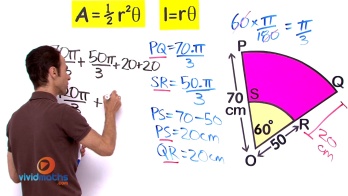 A = ½ r²θ
l = rθ
70π/3 + 50π/3 + 20 + 20
0π/3 +
PQ = 70.π/3
SR = 50.π/3
PS = 70 - 50
PS = 20cm
QR = 20cm
60 × π/180 = π/3
P
Q
S
R
O
70
cm
60°
50
20
cm
vividmaths.com